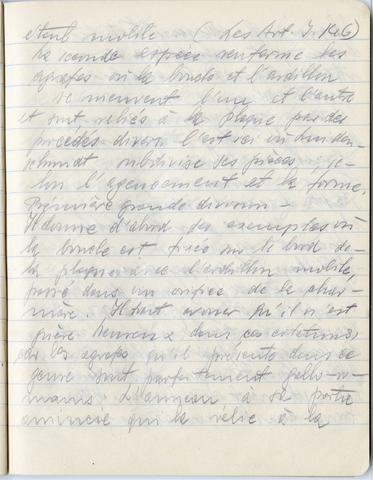 étant mobile (des Art. I. 146)
La seconde espèce renferme les
agrafes où la boucle et l'ardillon
se meuvent l'une et l'autre
et sont reliés à la plaque par des
procédés divers. C'est ici
subdivise ses pièces, se-
lon l'agencement et la forme.
Première grande division -
Il donne d'abord des exemples où
la boucle est fixée sur le bord de
la plaque avec l'ardillon mobile,
passé dans un orifice de la char-
nière. Il faut avouer qu'il n'est
guère heureux dans ces
car les agrafes qu'il présente dans ce
genre sont parfaitement gallo-ro-
maines: l'anneau a sa partie
amincie qui la relie à la